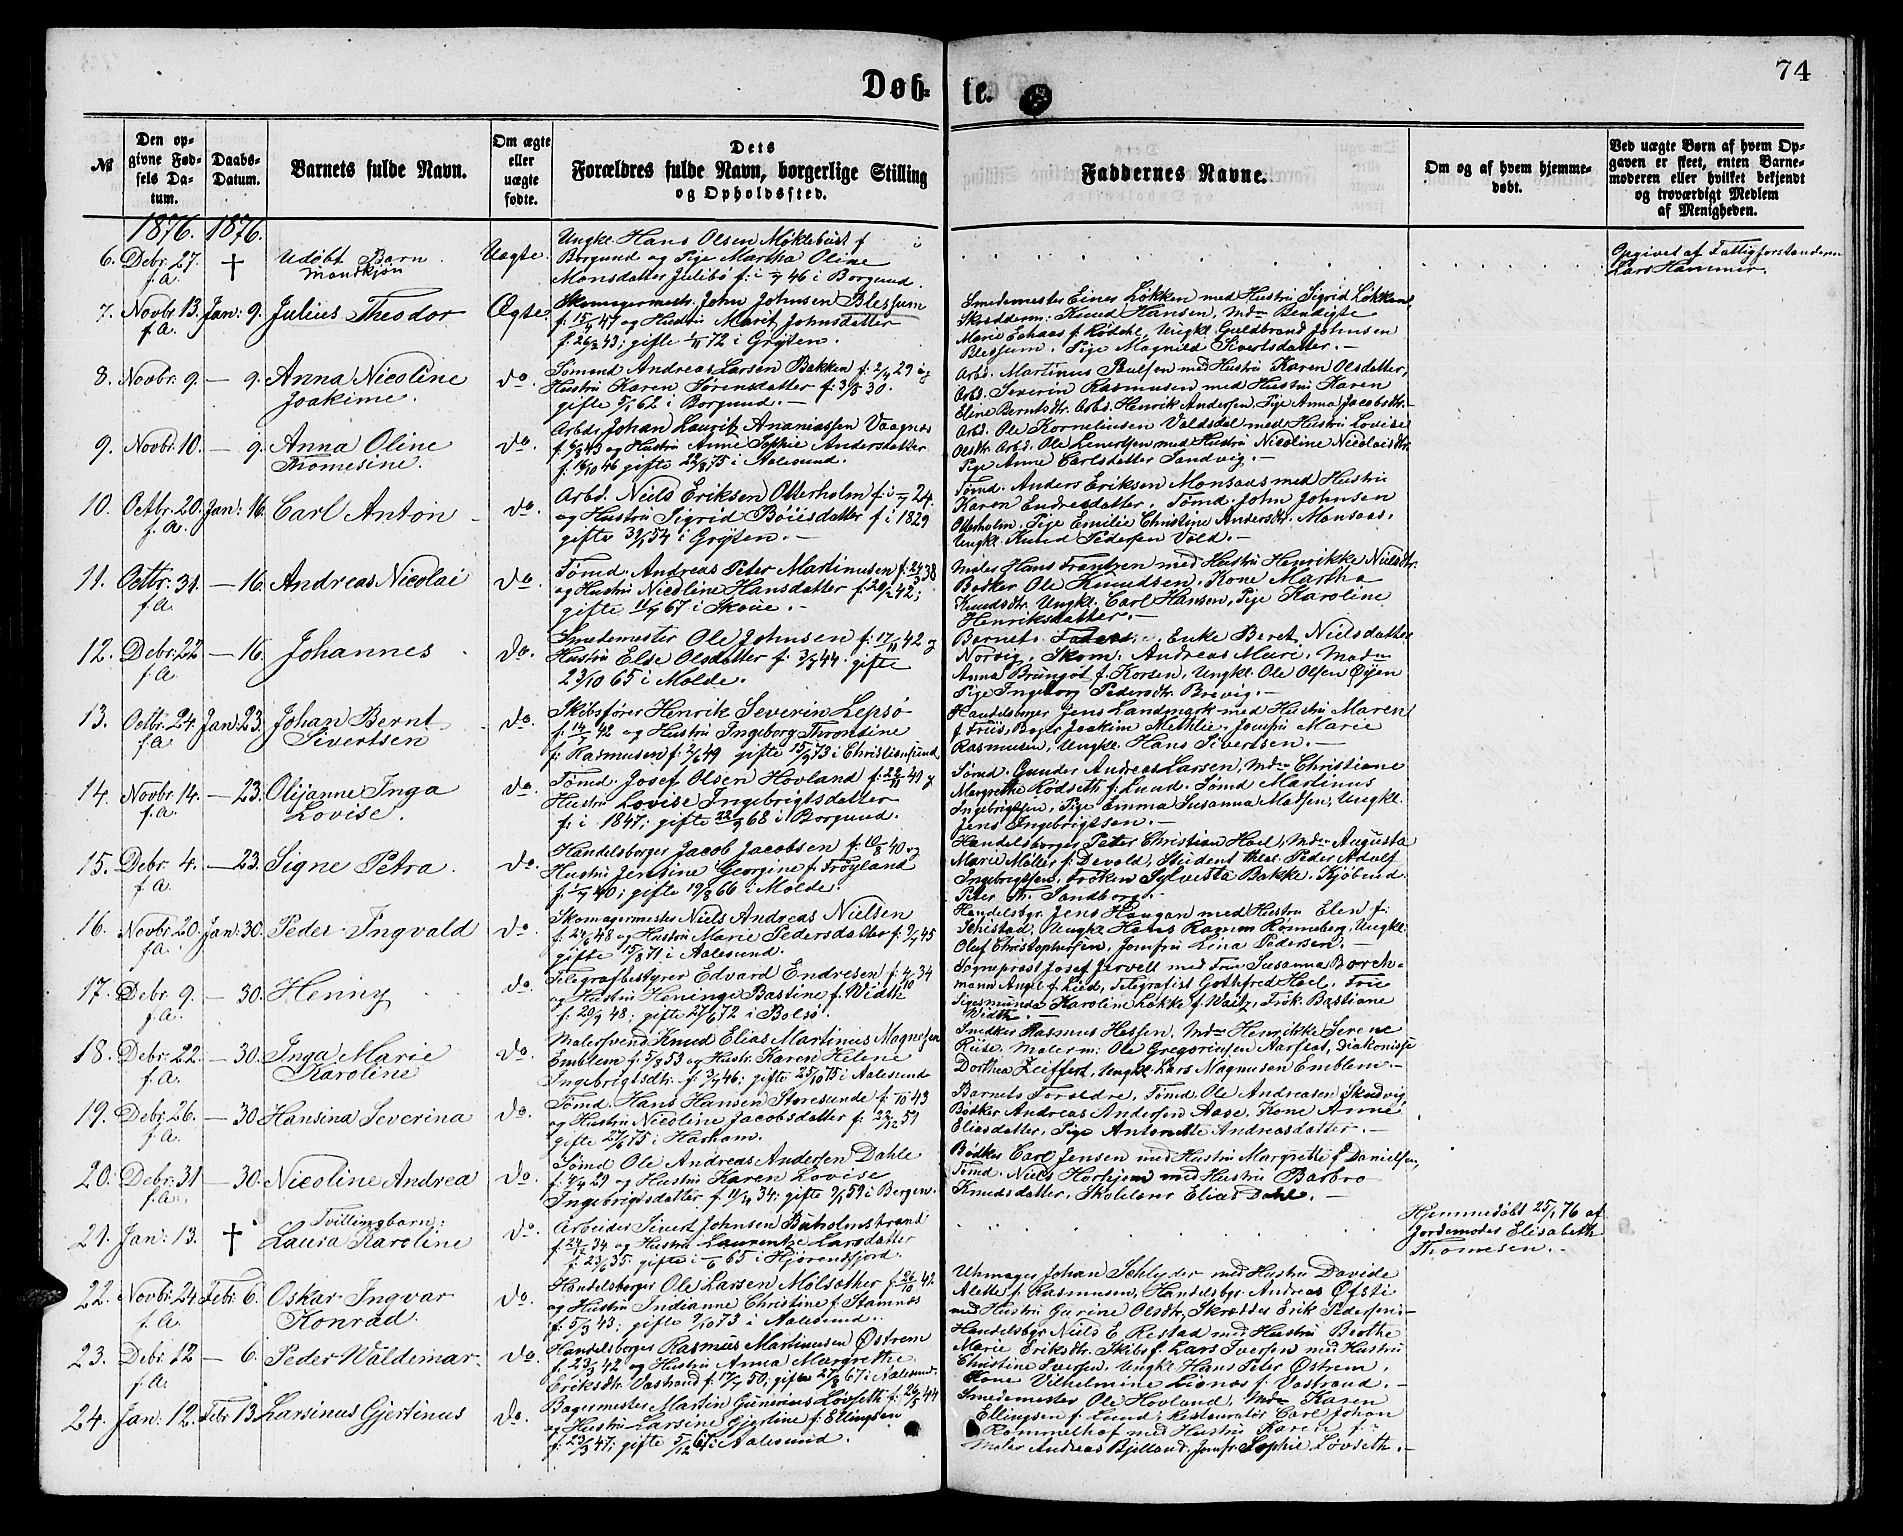 74
Døb-
te.
№
Den op-
givne Fød-
sels Da-
tum.
Daabs-
Datum.
Barnets fulde Navn.
Om ægte
eller
uægte
fødte.
Dets
Forældres fulde Navn, borgerlige Stilling
og Opholdssted.
Faddernes Navne.
Om og af hvem hjemme-
døbt.
Ved uægte Børn af hvem Op-
gaven er skeet, enten Barne-
moderen eller hvilket bekjendt
og troværdigt Medlem
af Menigheden.
1876. 1876.
6. Debr. 27. f.A. † Udøbt Barn
Mandkjøn
Uægte
Ungk. Hans Olsen Møklebust f i
Borgund og Pige Martha Oline
Monsdatter Julibø f: i 46 i Borgund.
Opgivet af Fattigforstanderen
Lars Hammer.
7. Novbr 13. f.A. Jan: 9. Julius Theodor
Ægte
Skomagermestr. John Johnsen Blessum
f. 15/4 47 og Hustru Marit Johnsdatter
f. 26/2 43; gifte 72 i Grytten.
Smedemester Einer Løkken med Hustru Sigrid Løkken
Skrædderm: Knud Hansen, Mdm Bendigte
Marie Echaas f. Rødahl, Ungk. Guldbrand Johnsen
Blessum. Pige Magnild Sivertsdatter.
8. Novbr. 9. — 9. Anna Nicoline
Joakime.
do.
Tømand Andreas Larsen Bakken f: 2/4 29 og
Hustru Karen Sørensdatter f: 3/8 30.
gifte 5/1 62 i Borgund.
Arbd. Martinus Paulsen med Hustru Karen Olsdatter,
Arbd. Severin Rasmusen med Hustru Karen
Eline Berntsdtr. Arbd. Henrik Andersen, Pige Anna Jacobsdtr.
9. Novbr. 10. — 9. Anna Oline
Thomesine.
do.
Arbdr Johan Lauritz Ananiassen Vaagnes
f. 6/8 43 og Hustru Anne Sophie Andersdatter
f. 16/10 46 gifte 22/8 75 i Aalesund.
Arbd. Ole Kornelinsen Valdsdal med Hustru Lovise
Olsdtr. Arbd. Ole Lenertsen med Hustru Nicoline Nicolaisdtr.
Pige Anne Carlsdatter Sandvig.
10. Octbr. 20. f.A. Jan: 16. Carl Anton
do.
Arbd. Niels Eriksen Otterholm f: i 24
og Hustru Sigrid Bøiesdatter f i 1829
gifte 54 i Grytten.
Tømd. Anders Eriksen Monsaas med Hustru
Karen Endresdatter. Tømd. John Johnsen
Otterholm, Pige Emilie Christine Andersdtr. Monsaas,
Ungk. Knud Pedersen Vold.
11. Octbr. 31. f.A. — 16. Andreas Nicolai
do.
Tømd. Andreas Peter Martinusen f. 24/3 38
og Hustru Nicoline Hansdatter f. 20/2 42;
gifte 67 i Skoue.
Maler Hans Frantzen med Hustru Henrikke Nielsdtr.
Bødker Ole Knudsen, Kone Martha
Knudsdtr. Ungk. Carl Hansen, Pige Karoline
Henriksdatter.
12. Debr: 22 f.A. — 16. Johannes
do.
Smedemester Ole Johnsen f: 17/11 42 og
Hustru Else Olsdatter f: 3/9 44. gifte
23/10 65 i Molde.
Barnets Fader, Enke Beret Nielsdatter
Norvig. Skom: Andreas Muri, Madm
Anna Brungot f. Korsen, Ungk. Ole Olsen Øyen
Pige Ingeborg Pedersdtr. Brevig.
13. Octbr. 24. f.A. Jan: 23. Johan Bernt
Sivertsen
do.
Skibsfører Henrik Severin Lepsø
f. 14/7 42 og Hustru Ingeborg Throntine
f. Rasmusen f. 2/6 49 gifte 15/9 73 i Christiansund
Handelsborger Jens Landmark med Hustru Maren
f. Friis, Bager Joakim Methlie, Jomfru Marie
Rasmusen, Ungk. Hans Sivertsen.
14. Novbr 14. f.A. — 23. Olijanne Inga
Lovise.
do.
Tømd. Josef Olsen Hovland f. 22/11 40 og
Hustru Lovise Ingebrigtsdatter
f: i 1847; gifte 22/9 68 i Borgund.
Tømd. Gunder Andreas Larsen, Mdm Christiane
Margrethe Rødseth f. Lund. Tømd Martinus
Ingebrigtsen, Pige Emma Susanna Madsen, Ungk.
Jens Ingebrigtsen.
15. Debr. 4. f.A. — 23. Signe Petra.
do.
Handelsborger Jacob Jacobsen f: 10/8 40 og
Hustru Jensine Georgine f. Frøyland
f. 40; gifte 19/8 66 i Molde.
Handelsborger Peter Christian Hoel, Mdm Augusta
Marie Møller f: Devold, Student theol. Peder Adolf
Ingebrigtsen, Frøken Sylvesta Bakke. Kjøbmd
Peter Th. Sandborg.
16. Novbr 20. f.A. Jan: 30. Peder Ingvald
do.
Skomagermester Niels Andreas Nielsen
f. 24/6 48 og Hustru Marie Pedersdatter f. 9/7 45
gifte 15/8 71 i Aalesund.
Handelsbgr. Jens Haugan med Hustru Elen f.
Schistad, Ungk Hans Ragnm Rønneberg, Ungk.
Oluf Christophersen, Jomfru Lina Pedersen.
17. Debr. 9. f.A. — 30. Henny
do.
Telegrafbestyrer Edvard Endresen f. 4/10 34
og Hustru Heninge Bastine f. Width
f. 20/9 48; gifte 27/6 72 i Bolsø.
Sogneprest Josef Jervell med Fru Susanna Borch-
mann Angel f. Lied, Telegrafist Gothfred Hoel, Frue
Sigesmunda Karoline Løkke f. Waitz, Frøk. Bastiane
Width.
18. Debr. 22. f.A. — 30. Inga Marie
Karoline
do.
Malersvend Knud Elias Martinus Magnesen
Emblem f. 5/9 53 og Hustr. Karen Helene
Ingebrigtsdtr. f. 3/7 46; gifte 25/10 75 i Aalesund
Snedker Rasmus Hessen, Mdm Henrikke Serene
Riise, Maler m: Ole Gregoriusen Aarflot, Diakonisse
Dorthea Zeiffert, Ungk. Lars Magnusen Emblem.
19. Debr. 26. f.A. — 30. Hansina Severina
do.
Tømd. Hans Hansen Storesunde f. 10 43
og Hustru Nicoline Jacobsdatter f. 22/12 51
gifte 27/6 75 i Harham.
Barnets Forældre, Tømd. Ole Andreasen Skudvig,
Bødker Andreas Andersen Aase, Kone Anne
Eliasdatter, Pige Antonette Andreasdatter.
20. Debr: 31 f.A. — 30. Nicoline Andrea
do.
Tømd Ole Andreas Andersen Dahle
f. 9/4 29 og Hustru Karen Lovise
Ingebrigtsdatter f. 11/4 34; gifte 9/9 59 i Bergen.
Bødker Carl Jensen med Hustru Margrethe f Danielsen,
Tømd. Niels Horhjem med Hustru Barbro
Knudsdatter, Skolelærer Elias Dahl.
21. Jan: 13. † Tvillingbarn:
Laura Karoline
do.
Arbeider Sivert Johnsen Buholmstrand
f. 24/12 34 og Hustru Laurentze Larsdatter
f. 23/6 35; gifte i 65 i Hjørendfjord.
Hjemmedøbt 25/1 76 af
Jordemoder Elisabeth
Thomesen.
22. Novbr. 24 f.A. Febr. 6. Oskar Ingvar
Konrad.
do.
Handelsborger Ole Larsen Molsæther f. 26/10 42
og Hustru Indianne Christine f. Stamnæs
f. 5/3 43; gifte 9/10 73 i Aalesund.
Uhrmager Johan Schlyder med Hustru Davide
Alette f. Rasmusen, Handelsbgr. Andreas Øfsti
med Hustru Gurine Olsdtr., Skrædder Erik Pedersen
23. Debr. 12 f.A. — 6. Peder Waldemar.
do.
Handelsborger Rasmus Martinusen Østrem
f. 23/3 42 og Hustru Anna Margrethe
Eriksdtr. Vastrand f. 17/7 50; gifte 27/8 67 i Aalesund.
Handelsbgr Niels E. Restad med Hustru Berthe
Marie Eriksdtr. Skibsf. Lars Iversen med Hustru
Christine Iversen, Ungk. Hans Peter Østrem,
Kone Vilhelmine Lianes f. Vastrand.
24. Jan: 12. Febr 13. Larsinus Gjertinus
do.
Bagermester Martin Gunerius Løvseth f. 26/5 44
og Hustru Larsine Gjertine f. Ellingsen
f. 23/3 47; gifte 5/12 67 i Aalesund.
Smedemester Ole Hovland, Mdm Karen
Ellingsen f. Lund; Restauratør Carl Johan
Rommelhof med Hustru Karen f.
Maler Andreas Bjelland, Jomfr Sophie Løvseth.